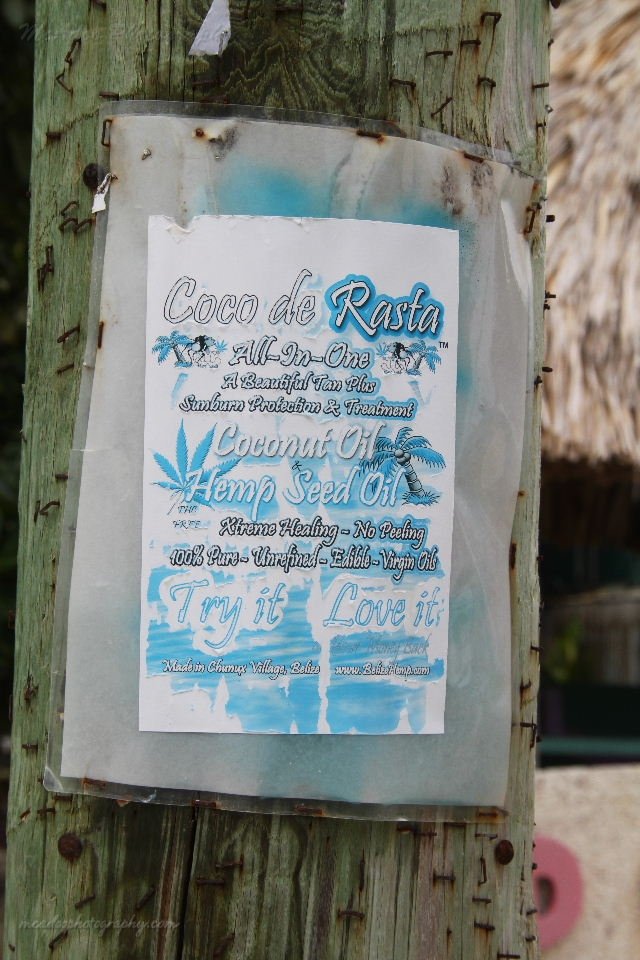 Coco de Rasta™
All-In-One
A Beautiful Tan Plus
Sunburn Protection & Treatment
Coconut Oil
&
Hemp Seed Oil
THC
FREE
Xtreme Healing ~ No Peeling
100% Pure ~ Unrefined ~ Edible ~ Virgin Oils
Try it Love it
Money Back
Made in Chunux Village, Belize www.BelizeHemp.com
meadosphotography.com